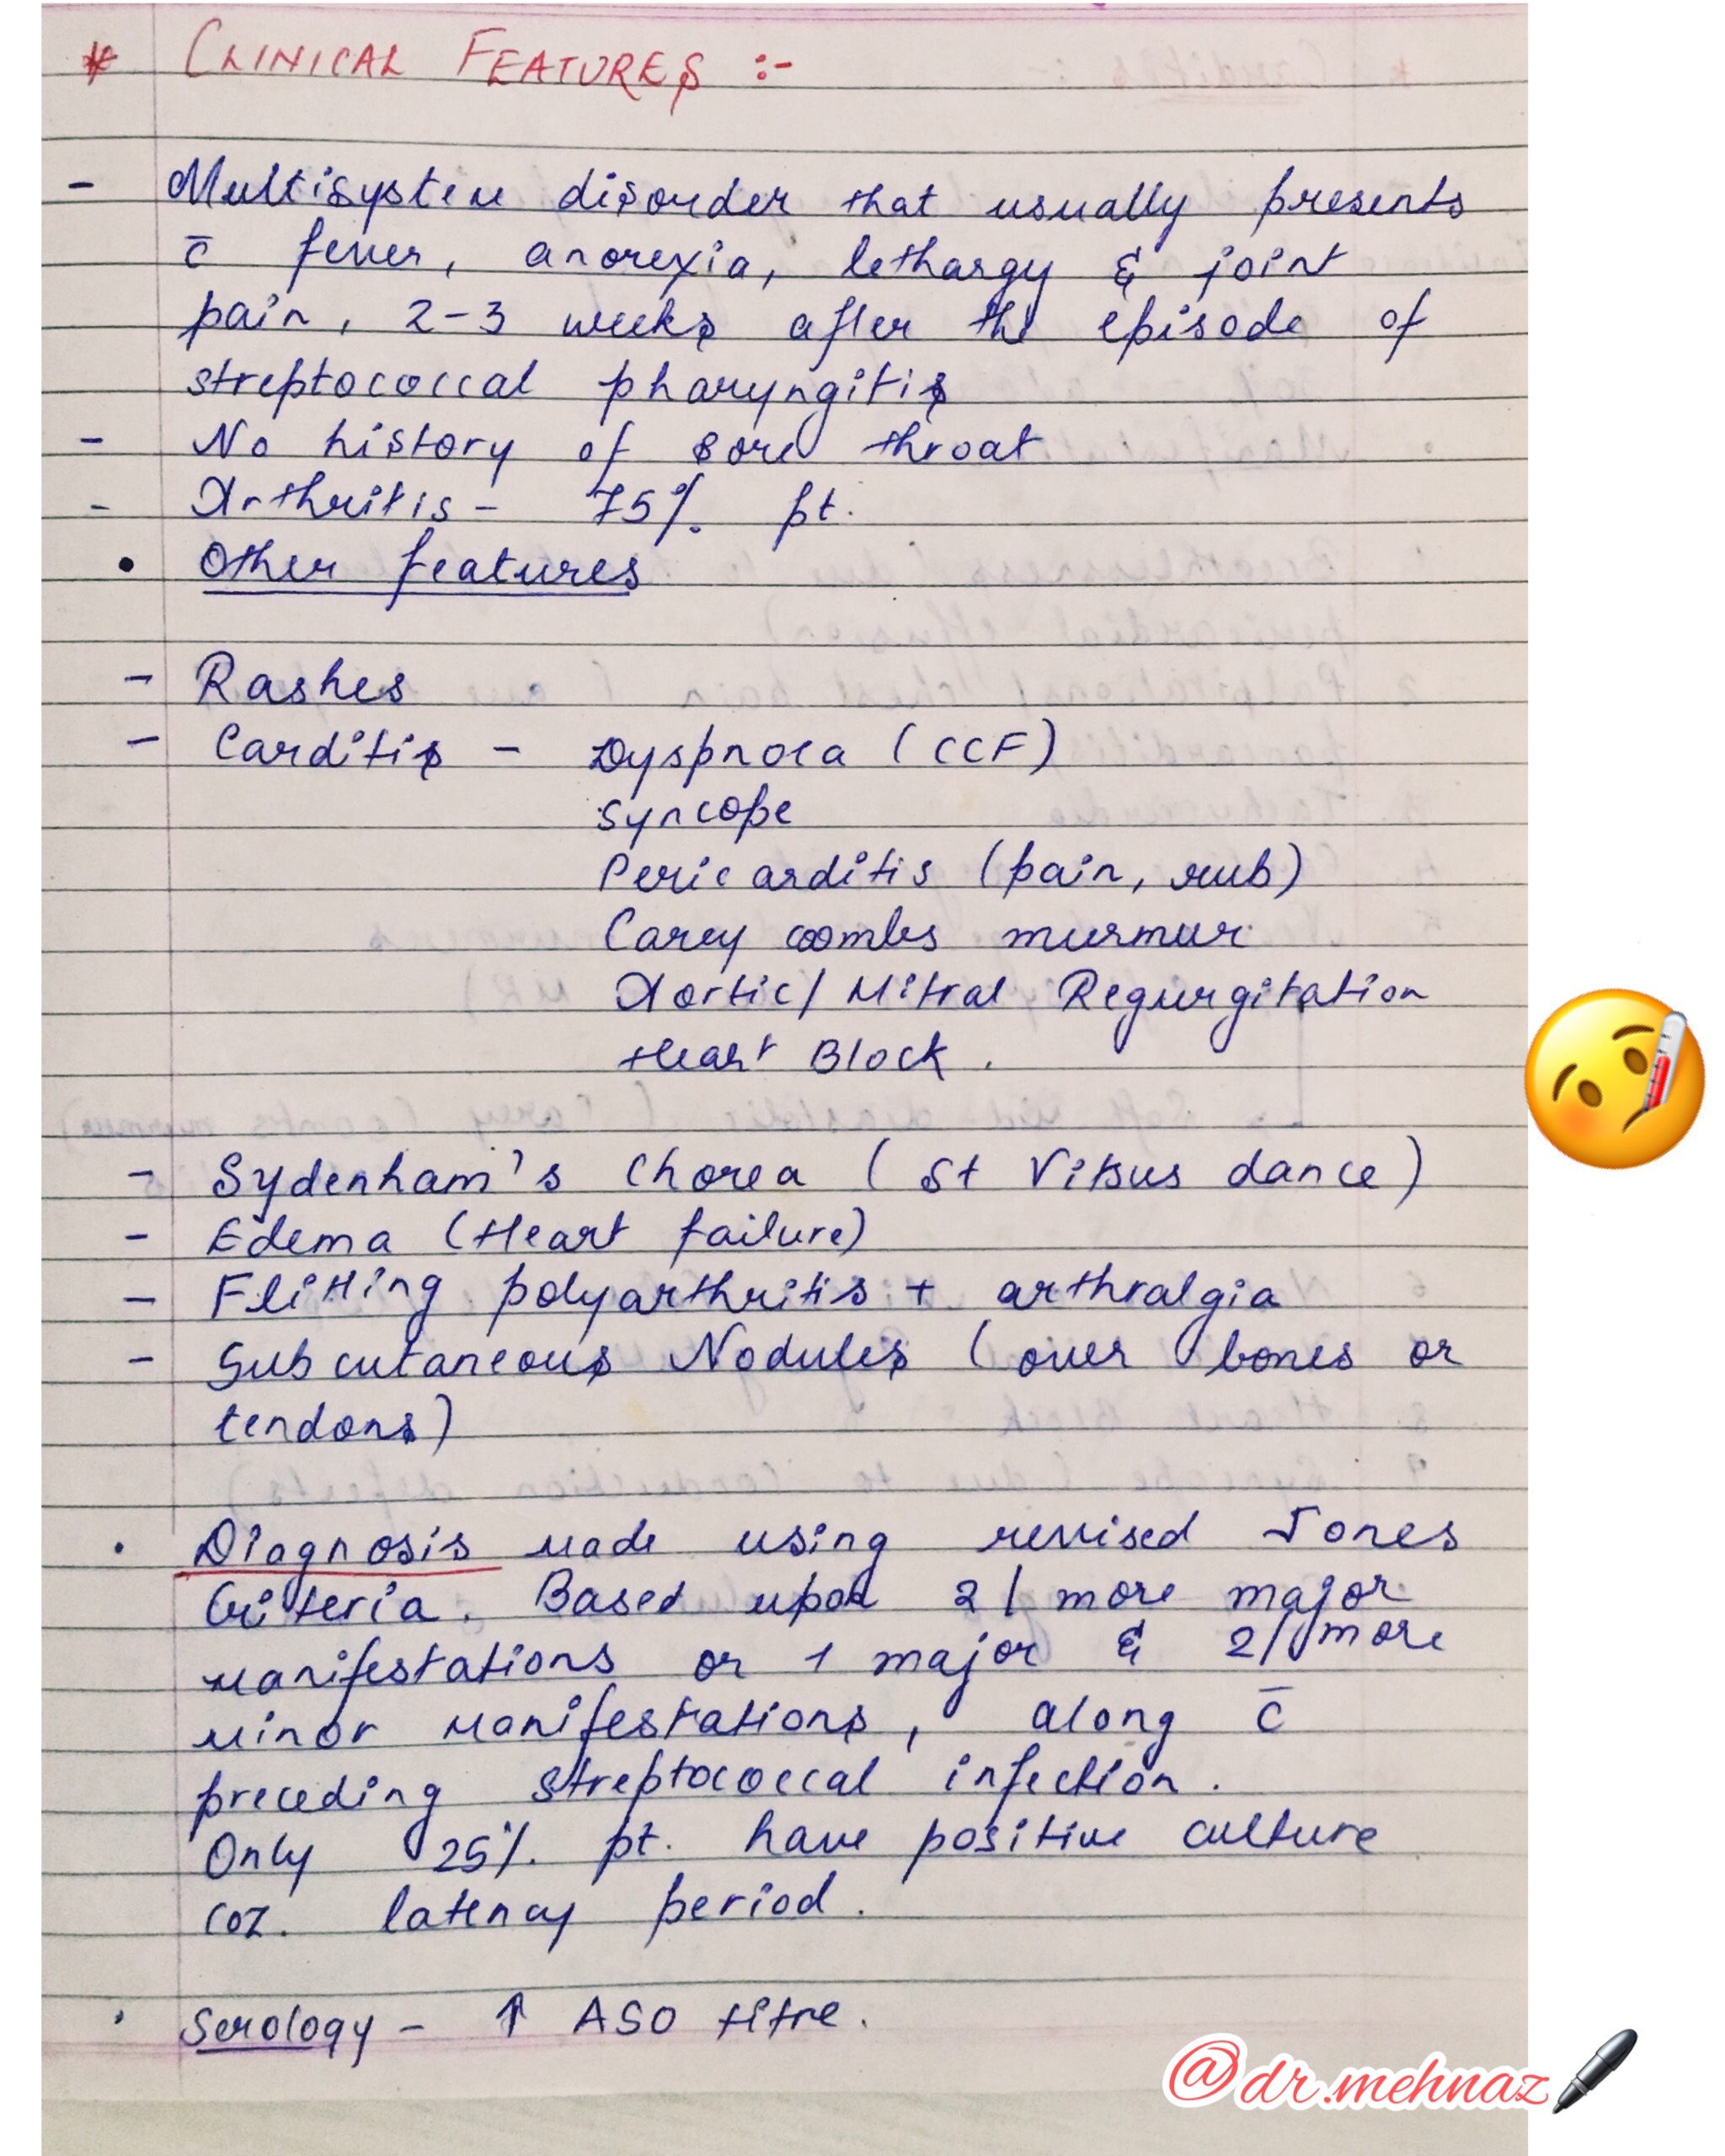 * CLINICAL FEATURES :-
- Multisystem disorder that usually presents
c̄ fever, anorexia, lethargy & joint
pain, 2-3 weeks after the episode of
streptococcal pharyngitis
- No history of sore throat
- Arthritis - 75% pt.
• Other features
- Rashes
- Carditis - Dyspnoea (CCF)
Syncope
Pericarditis (pain, rub)
Carey coombs murmur
Aortic/ Mitral Regurgitation
Heart Block.
- Sydenham's Chorea (St Vitsus dance)
- Edema (Heart failure)
- Flitting polyarthritis + arthralgia
- Subcutaneous Nodules (over bones or
tendons)
• Diagnosis made using revised Jones
Criteria. Based upon 2/more major
manifestations or 1 major & 2/more
minor manifestations, along c̄
preceding streptococcal infection.
Only 25% pt. have positive culture
coz. latency period.
• Serology - ↑ ASO titre.
@dr.mehnaz